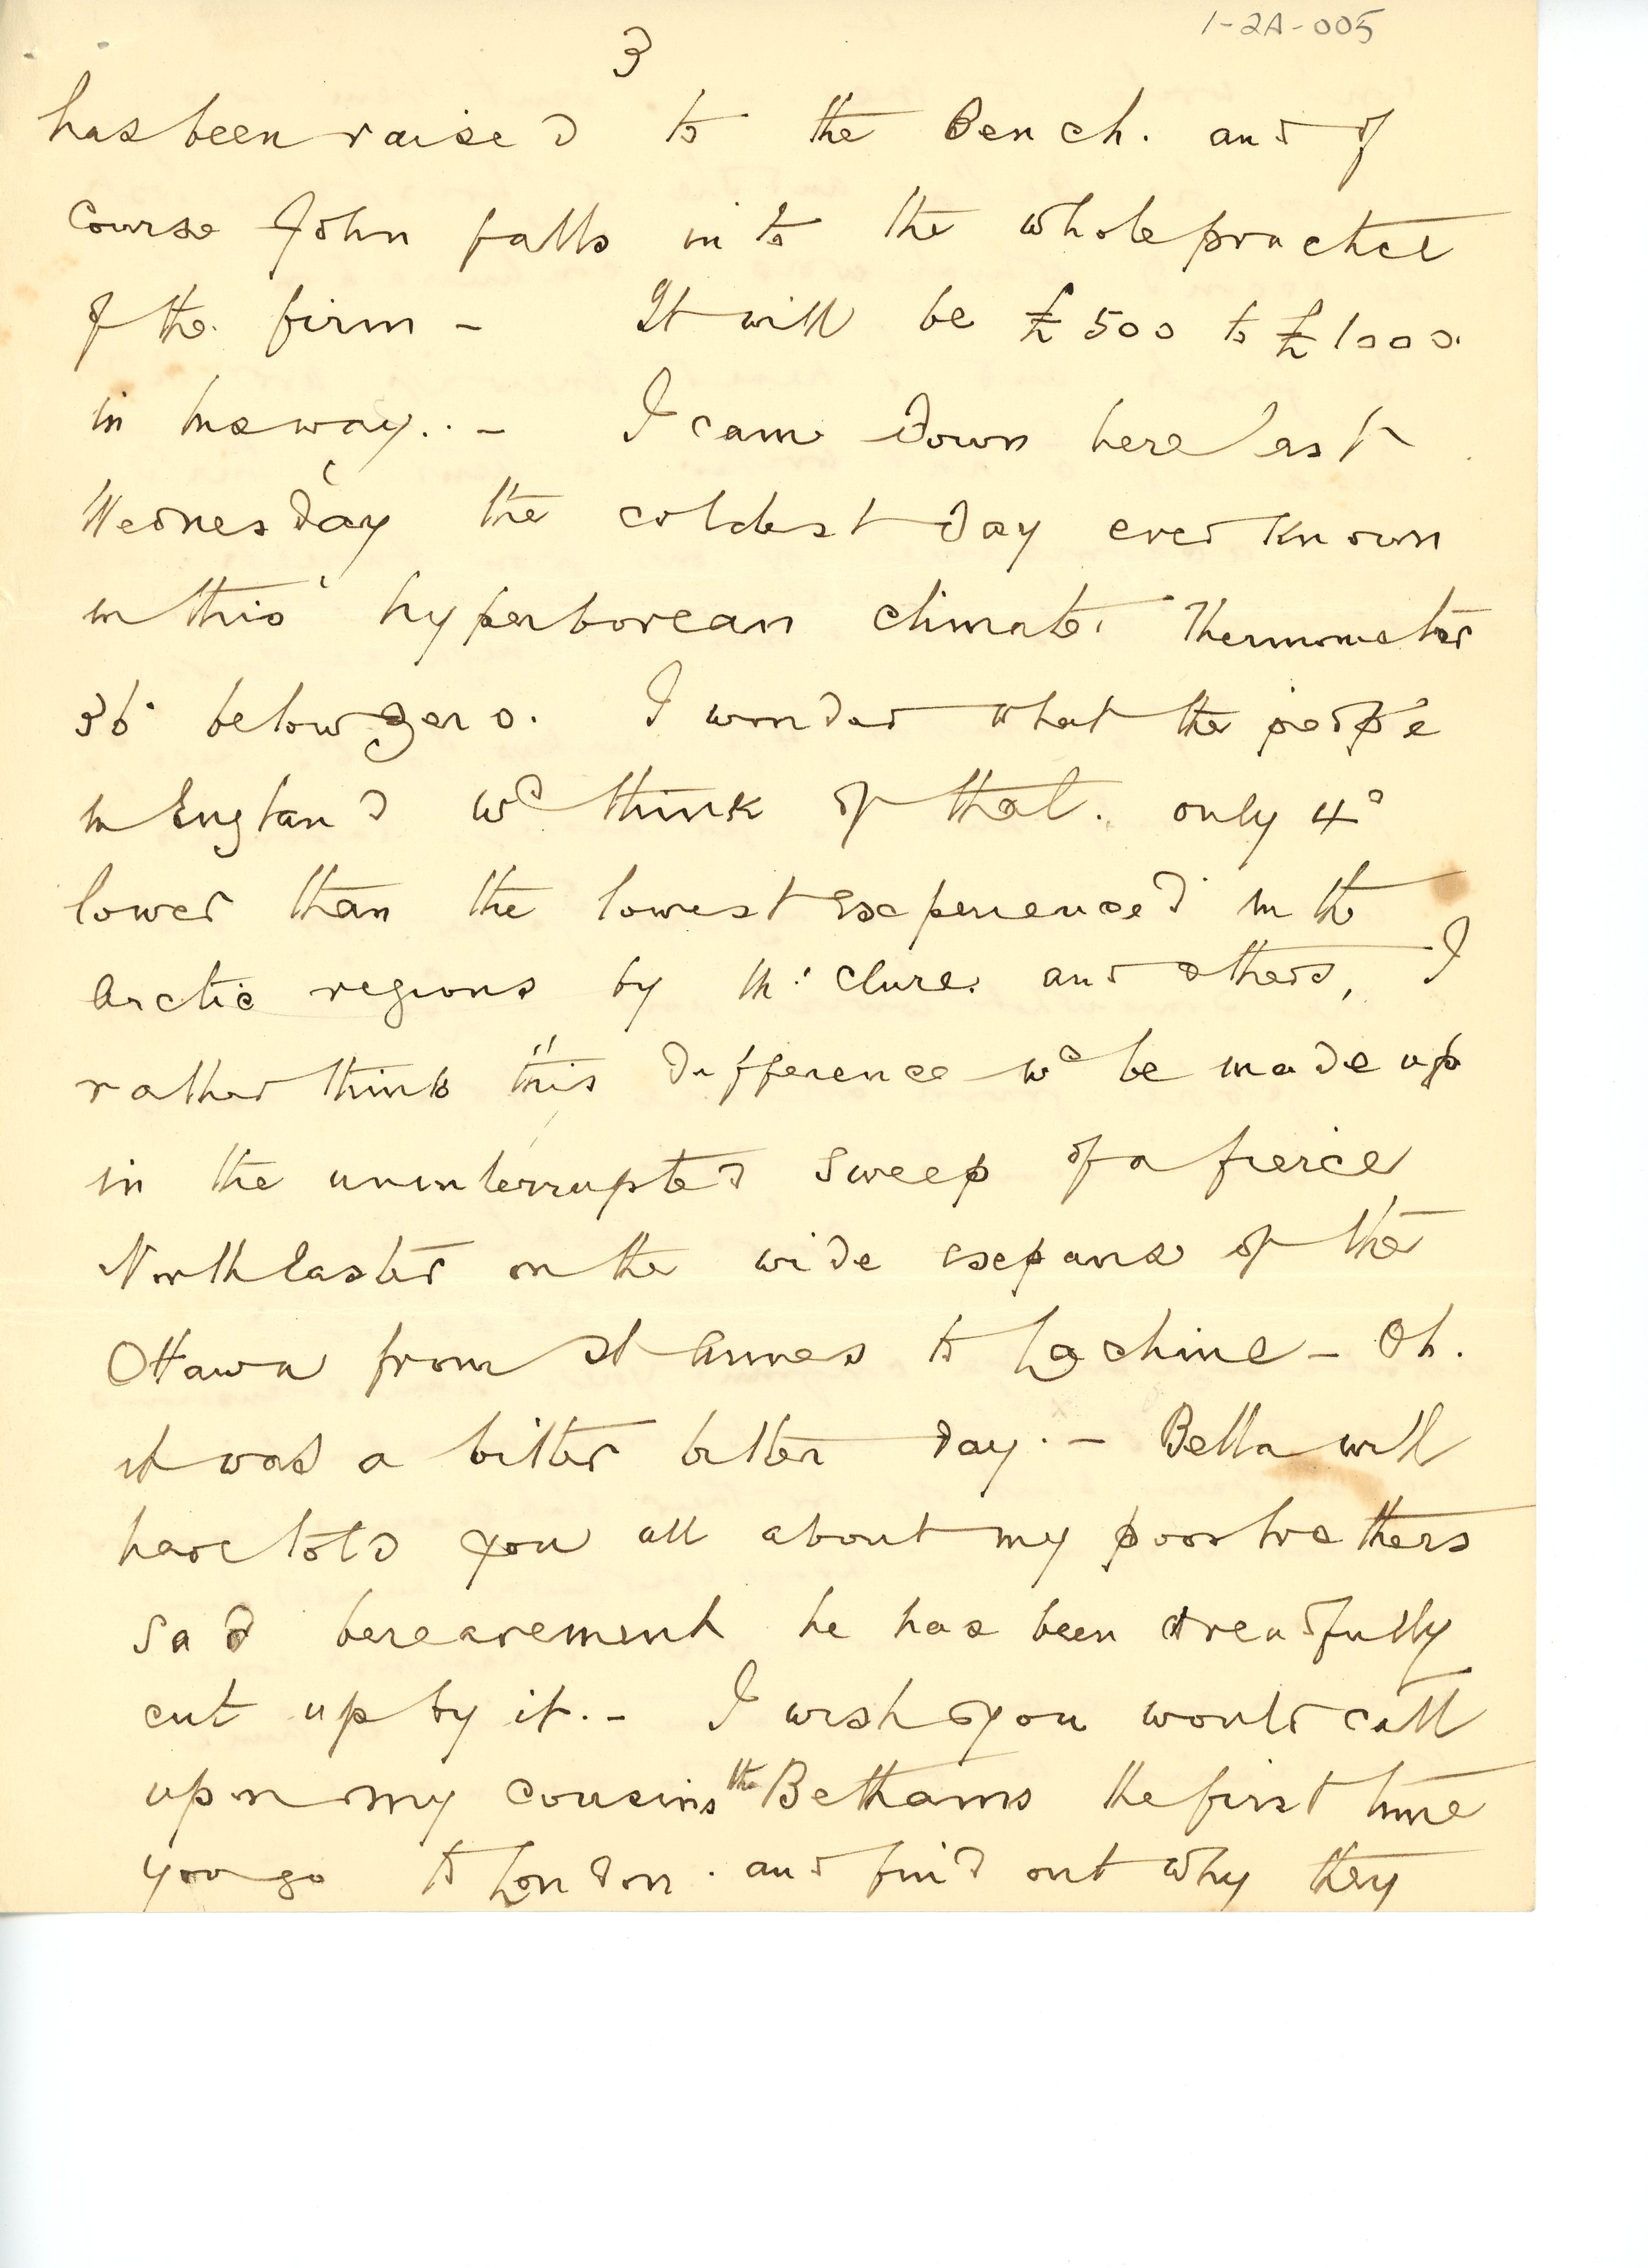 1-2A-005
3
has been raised to the Bench. and of
course John falls into the whole practice
of the firm - It will be £500 to £1000.
in his way. . - I came down here last
Wednesday the coldest day ever known
in this hyperborean climate. Thermometer
36° below zero. I wonder what the people
in England wd think of that. only 4°
lower than the lowest experienced in the
Arctic regions by Mc Clure. and others, I
rather think this difference wd be made up
in the uninterrupted sweep of a fierce
North Easter on the wide expanse of the
Ottawa from St Annes to Lachine - Oh.
it was a bitter bitter day. - Bella will
have told you all about my poor brothers
sad bereavement he has been dreadfully
cut up by it. - I wish you would call
upon my cousins the Bethams the first time
you go to London. and find out why they